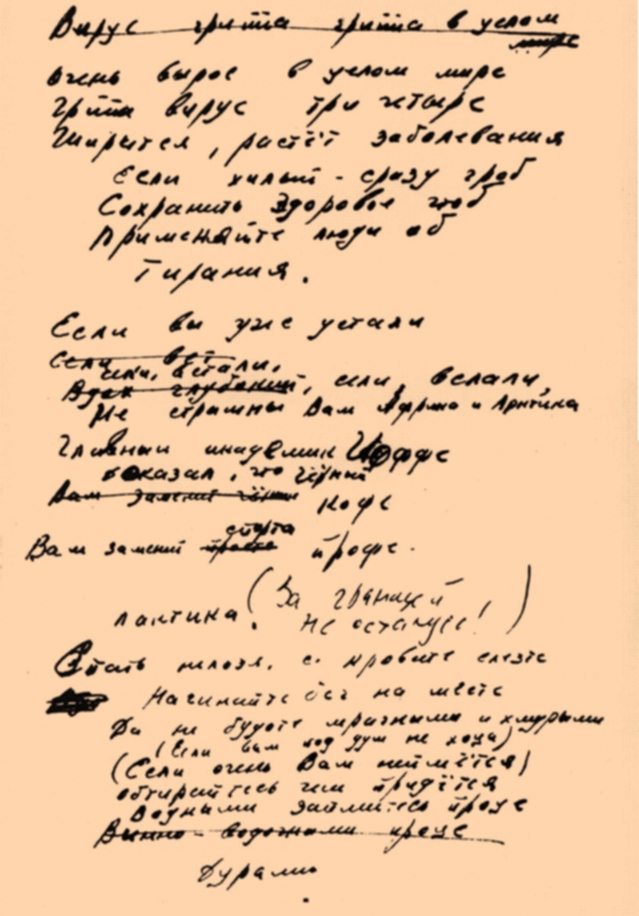 Вирус гриппа гриппа в целом
мире
Очень вырос в целом мире
Гриппа вирус три четыре
Ширится, растёт заболевания
Если хилый - сразу гроб
Сохранить здоровье чтоб
Применяйте люди об
тирания.
Если вы уже устали
Если
или, встали,
сели, встали,
Не страшны Вам Африка и Арктика
Главный академик Иоффе
доказал, что чёрный
Вам заменит
кофе
спорта
Вам заменит просто профи-
лактика. (За границей
не останусь!)
Спать нельзя, с кровати слезте
Начинайте бег на месте
Да не будете мрачными и хмурыми
(Если вам под душ не хоца)
(Если очень Вам неймётся)
обтирайтесь чем придётся
Водными займитесь проце
Винно-водочными проце
Дурами
.